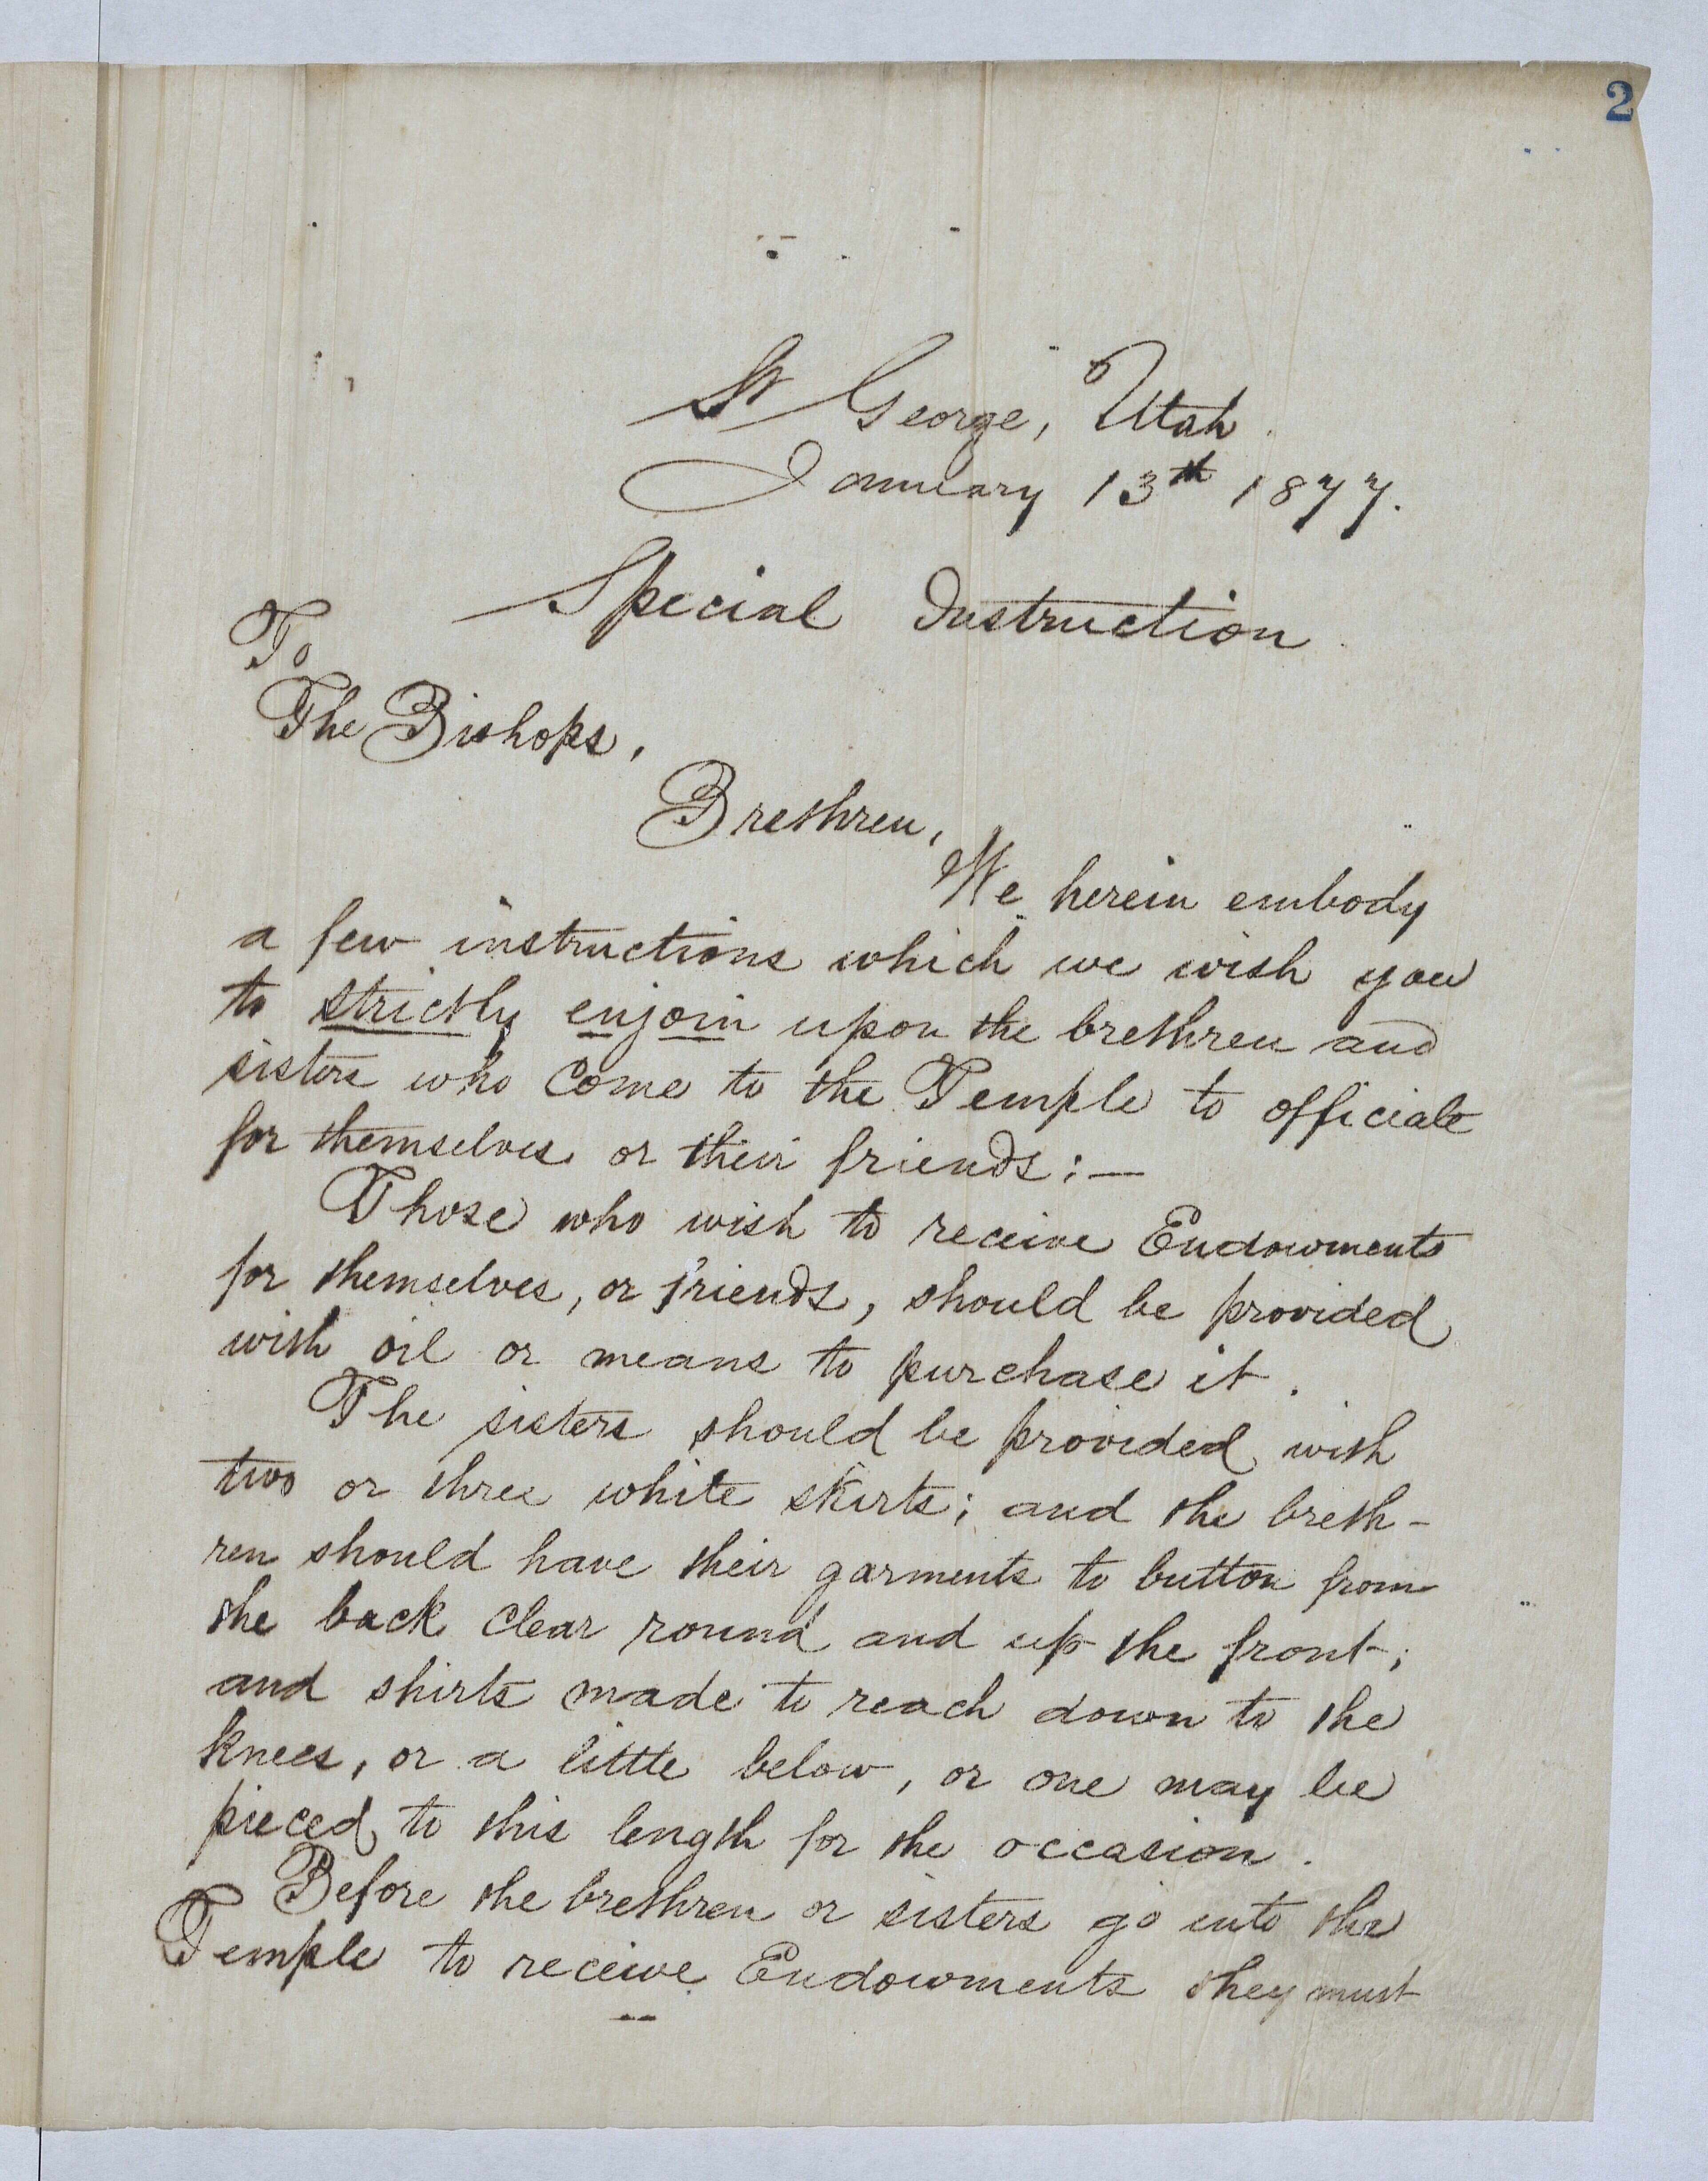 2
St George, Utah.
January 13th 1877.
Special Instruction.
To
The Bishops,
Brethren,
We herein embody
a few instructions which we wish you
to strictly enjoin upon the brethren and
sisters who come to the Temple to officiate
for themselves or their friends:—
Those who wish to receive Endowments
for themselves, or friends, should be provided
with oil or means to purchase it.
The sisters should be provided with
two or three white skirts; and the breth-
ren should have their garments to button from
the back clear round and up the front;
and shirts made to reach down to the
knees, or a little below, or one may be
pieced to this length for the occasion.
Before the brethren or sisters go into the
Temple to receive Endowments they must